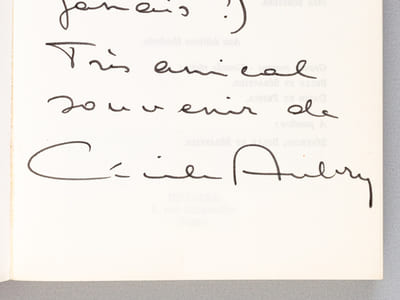 jamais !)
Très amical
souvenir de
Cécile Aubry